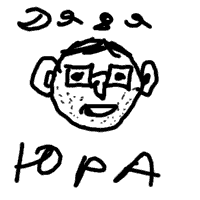 Дядя
ЮРА